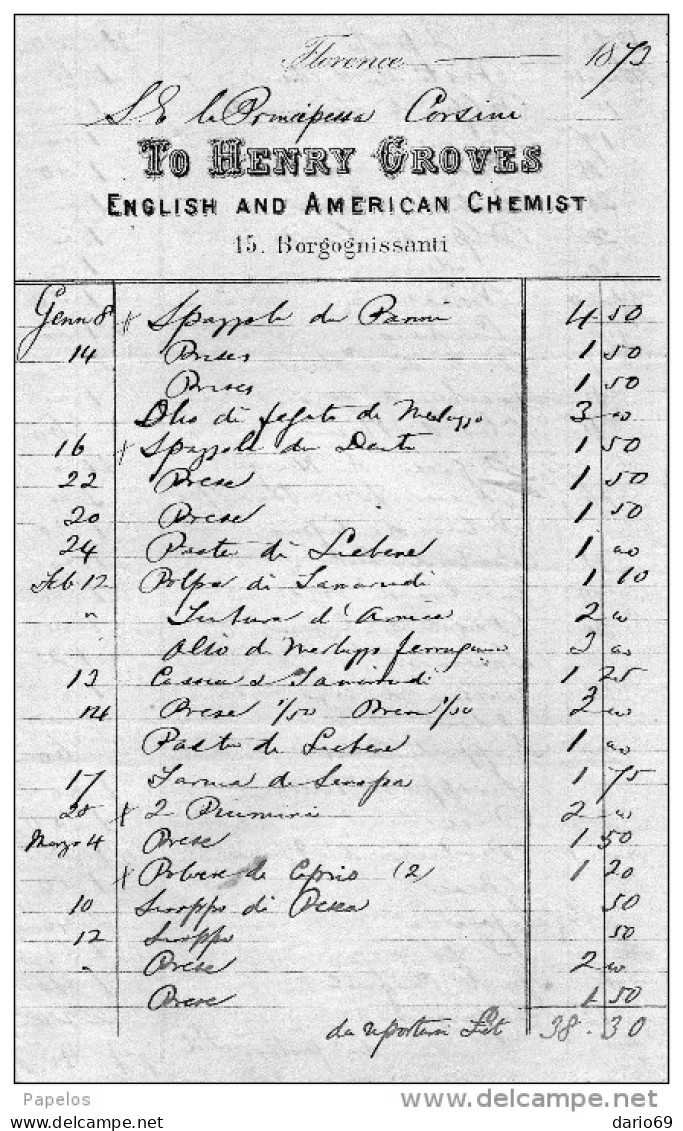 Florence 1873
S. E. la Principessa Corsini
TO HENRY GROVES
ENGLISH AND AMERICAN CHEMIST
15. Borgognissanti
Genn 8 x Spazzola da Panni 4 50
14 Prese 1 50
Prese 1 50
Olio di fegato di Merluzzo 3 00
16 x Spazzola da Denti 1 50
22 Prese 1 50
20 Prese 1 50
24 Pasta di Lichene 1 00
Feb 12 Polpa di Tamarindi 1 10
" Tintura d'Arnica 2 00
Olio di Merluzzo ferruginoso 3 00
13 Cassia e Tamarindi 1 25
14 Prese 1/50 1/50 3 00
Pasta di Lichene 1 00
17 Farina di Senapa 1 75
x 2 Piumini 2 00
Marzo 4 Prese 1 50
x Polvere di Cipria (2) 1 20
10 Siroppo di Pesca 50
12 Siroppo 50
" Prese 2 00
Prese 1 50
da riportarsi Lit 38.30
Papelos
www.delcampe.net
dario69